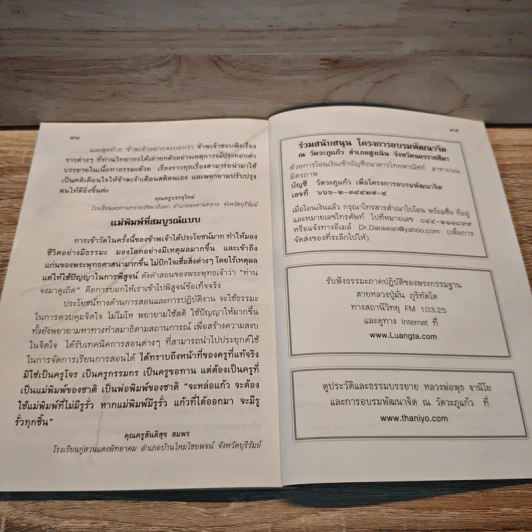 ๙๘
และสุดท้าย ข้าพเจ้าอยากจะบอกว่า ข้าพเจ้าชอบฟังเรื่อง
ราวต่างๆ ที่ท่านวิทยากรได้เล่ายกตัวอย่างเหตุการณ์ประกอบคำ
บรรยายในเนื้อหาธรรมะด้วย เรื่องราวทุกเรื่องสามารถนำมาใช้
เป็นคติเตือนใจให้ข้าพเจ้าเตือนสติตนเอง และพยายามปรับปรุง
ตนให้ดียิ่งขึ้นค่ะ
แม่พิมพ์ที่สมบูรณ์แบบ
การเข้าวัดในครั้งนี้ของข้าพเจ้าได้ประโยชน์มาก ทำให้มอง
ชีวิตอย่างมีธรรมะ มองโลกอย่างมีเหตุผลมากขึ้น และเข้าถึง
แก่นของพระพุทธศาสนามากขึ้น ไม่ปักใจเชื่อสิ่งต่างๆ โดยไร้เหตุผล
แต่ให้ใช้ปัญญาในการพิสูจน์ ดังคำสอนของพระพุทธเจ้าว่า "ท่าน
จงมาดูเถิด" คือการบอกให้เราเข้าไปพิสูจน์ข้อเท็จจริง
ประโยชน์ทางด้านการสอนและการปฏิบัติงาน จะใช้ธรรมะ
ในการควบคุมจิตใจ ไม่โมโห พยายามใช้สติ ใช้ปัญญาให้มากขึ้น
ทั้งยังพยายามหาทางทำสมาธิตามสถานการณ์ เพื่อสร้างความสงบ
ในจิตใจ ได้รับเทคนิคการสอนต่างๆ ที่สามารถนำไปประยุกต์ใช้
ในการจัดการเรียนการสอนได้ ได้ทราบถึงหน้าที่ของครูที่แท้จริง
มิใช่เป็นครูโจร เป็นครูกรรมกร เป็นครูขอทาน แต่ต้องเป็นครูที่
เป็นแม่พิมพ์ของชาติ เป็นพ่อพิมพ์ของชาติ "จะหล่อแก้ว จะต้อง
ใช้แม่พิมพ์ที่ไม่มีรูรั่ว หากแม่พิมพ์มีรูรั่ว แก้วที่ได้ออกมา จะมีรู
รั่วทุกชิ้น"
คุณครูสันติสุข สมพร
โรงเรียนกู่สวนแตงพิทยาคม อำเภอบ้านใหม่ไชยพจน์ จังหวัดบุรีรัมย์
๙๙
ร่วมสนับสนุน โครงการอบรมพัฒนาจิต
ณ วัดวะภูแก้ว อำเภอสูงเนิน จังหวัดนครราชสีมา
ด้วยการโอนเงินเข้าบัญชีธนาคารไทยพาณิชย์ สาขาถนน
มิตรภาพ
บัญชี วัดวะภูแก้ว เพื่อโครงการอบรมพัฒนาจิต
เมื่อโอนเงินแล้ว กรุณาโทรสารสำเนาใบโอน พร้อมชื่อ ที่อยู่
และหมายเลขโทรศัพท์ ไปที่หมายเลข
หรือแจ้งทางอีเมล์ Dr.Darawan@yahoo.com (เพื่อการ
จัดส่งของที่ระลึกไปให้)
รับฟังธรรมะภาคปฏิบัติของพระกรรมฐาน
สายหลวงปู่มั่น ภูริทัตโต
ทางสถานีวิทยุ FM 103.25
และดูทาง Internet ที่
www.Luangta.com
ดูประวัติและธรรมบรรยาย หลวงพ่อพุธ ฐานิโย
และการอบรมพัฒนาจิต ณ วัดวะภูแก้ว ที่
www.thaniyo.com